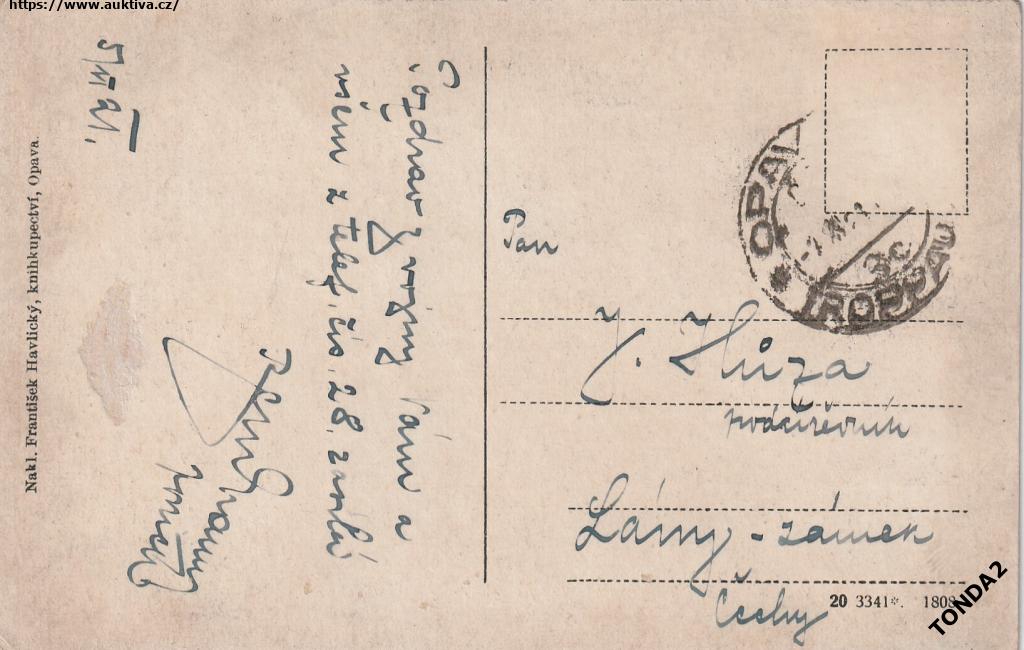 https://www.auktiva.cz/
5/VI 21.
Pozdrav z vojny Vám a
všem z telef. čís. 28. zasílá
Nakl. František Havlický, knihkupectví, Opava.
OPAVA
TROPPAU
3c
Pan
J. Hůza
Lány - zámek
Čechy
20 3341*. 1808
TONDA2